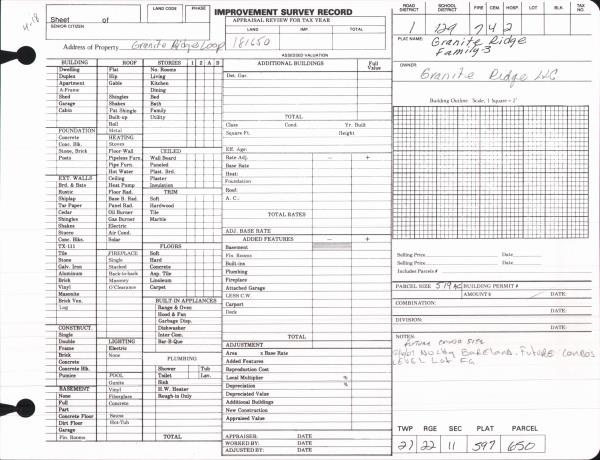 4-18
Sheet of
SENIOR CITIZEN
LAND CODE
PHASE
IMPROVEMENT SURVEY RECORD
APPRAISAL REVIEW FOR TAX YEAR
LAND IMP. TOTAL
Address of Property Granite Ridge Loop
181650
ASSESSED VALUATION
ROAD DISTRICT SCHOOL DISTRICT FIRE CEM. HOSP LOT BLK. TAX NO.
1 129 7 4 2
PLAT NAME:
Granite Ridge
Family-3
OWNER:
Granite Ridge LLC
Building Outline Scale, 1 Square = 2'
BUILDING ROOF STORIES 1 2 A B
Dwelling Flat No. Rooms
Duplex Hip Living
Apartment Gable Kitchen
A-Frame Dining
Shed Shingles Bed
Garage Shakes Bath
Cabin Pat. Shingle Family
Built-up Utility
Roll
FOUNDATION Metal
Concrete HEATING
Conc. Blk. Stoves CEILED
Stone, Brick Floor Wall Wall Board
Posts Pipeless Furn. Paneled
Pipe Furn. Plast. Brd.
Hot Water Plaster
EXT. WALLS Ceiling Insulation
Brd. & Bats Heat Pump TRIM
Rustic Floor Rad. Soft
Shiplap Base B. Rad. Hardwood
Tar Paper Panel Rad. Tile
Cedar Oil Burner Marble
Shingles Gas Burner
Shakes Electric
Stucco Air Cond.
Conc. Blks. Solar FLOORS
TX-111 Soft
Tile FIREPLACE Hard
Stone Single Concrete
Galv. Iron Stacked Asp. Tile
Aluminum Back-to-back Linoleum
Brick Masonry Carpet
Vinyl O'Clearance
Masonite
Brick Ven. BUILT-IN APPLIANCES
Log Range & Oven
Hood & Fan
Garbage Disp.
CONSTRUCT. Dishwasher
Single Inter Com.
Double LIGHTING Bar-B-Que
Frame Electric
Brick None PLUMBING
Concrete
Concrete Blk. Shower Tub
Pumice POOL Toilet Lav.
Gunite Sink
BASEMENT Vinyl H.W. Heater
None Fiberglass Rough-in Only
Full Concrete
Part
Concrete Floor Sauna
Dirt Floor Hot-Tub
Garage
Fin. Rooms TOTAL
ADDITIONAL BUILDINGS Full Value
Det. Gar.
TOTAL
Class Cond. Yr. Built
Square Ft. Height
Eff. Age:
Rate Adj. − +
Base Rate
Heat:
Foundation
Roof:
A. C.:
TOTAL RATES
ADJ. BASE RATE
ADDED FEATURES − +
Basement
Fin. Rooms
Built-ins
Plumbing
Fireplace
Attached Garage
LESS C.W.
Carport
Deck
TOTAL
ADJUSTMENT
Area x Base Rate
Added Features
Reproduction Cost
Local Multiplier %
Depreciation %
Depreciated Value
Additional Buildings
New Construction
Appraised Value
APPRAISER: DATE
WORKED BY: DATE
ADJUSTED BY: DATE
Selling Price Date
Selling Price Date
Includes Parcels #
PARCEL SIZE BUILDING PERMIT #
AMOUNT $ DATE:
COMBINATION:
DATE:
DIVISION:
DATE:
NOTES:
Future Condo Site
Bareland. Future Condos
Level Lot
TWP RGE SEC PLAT PARCEL
21 22 11 597 650